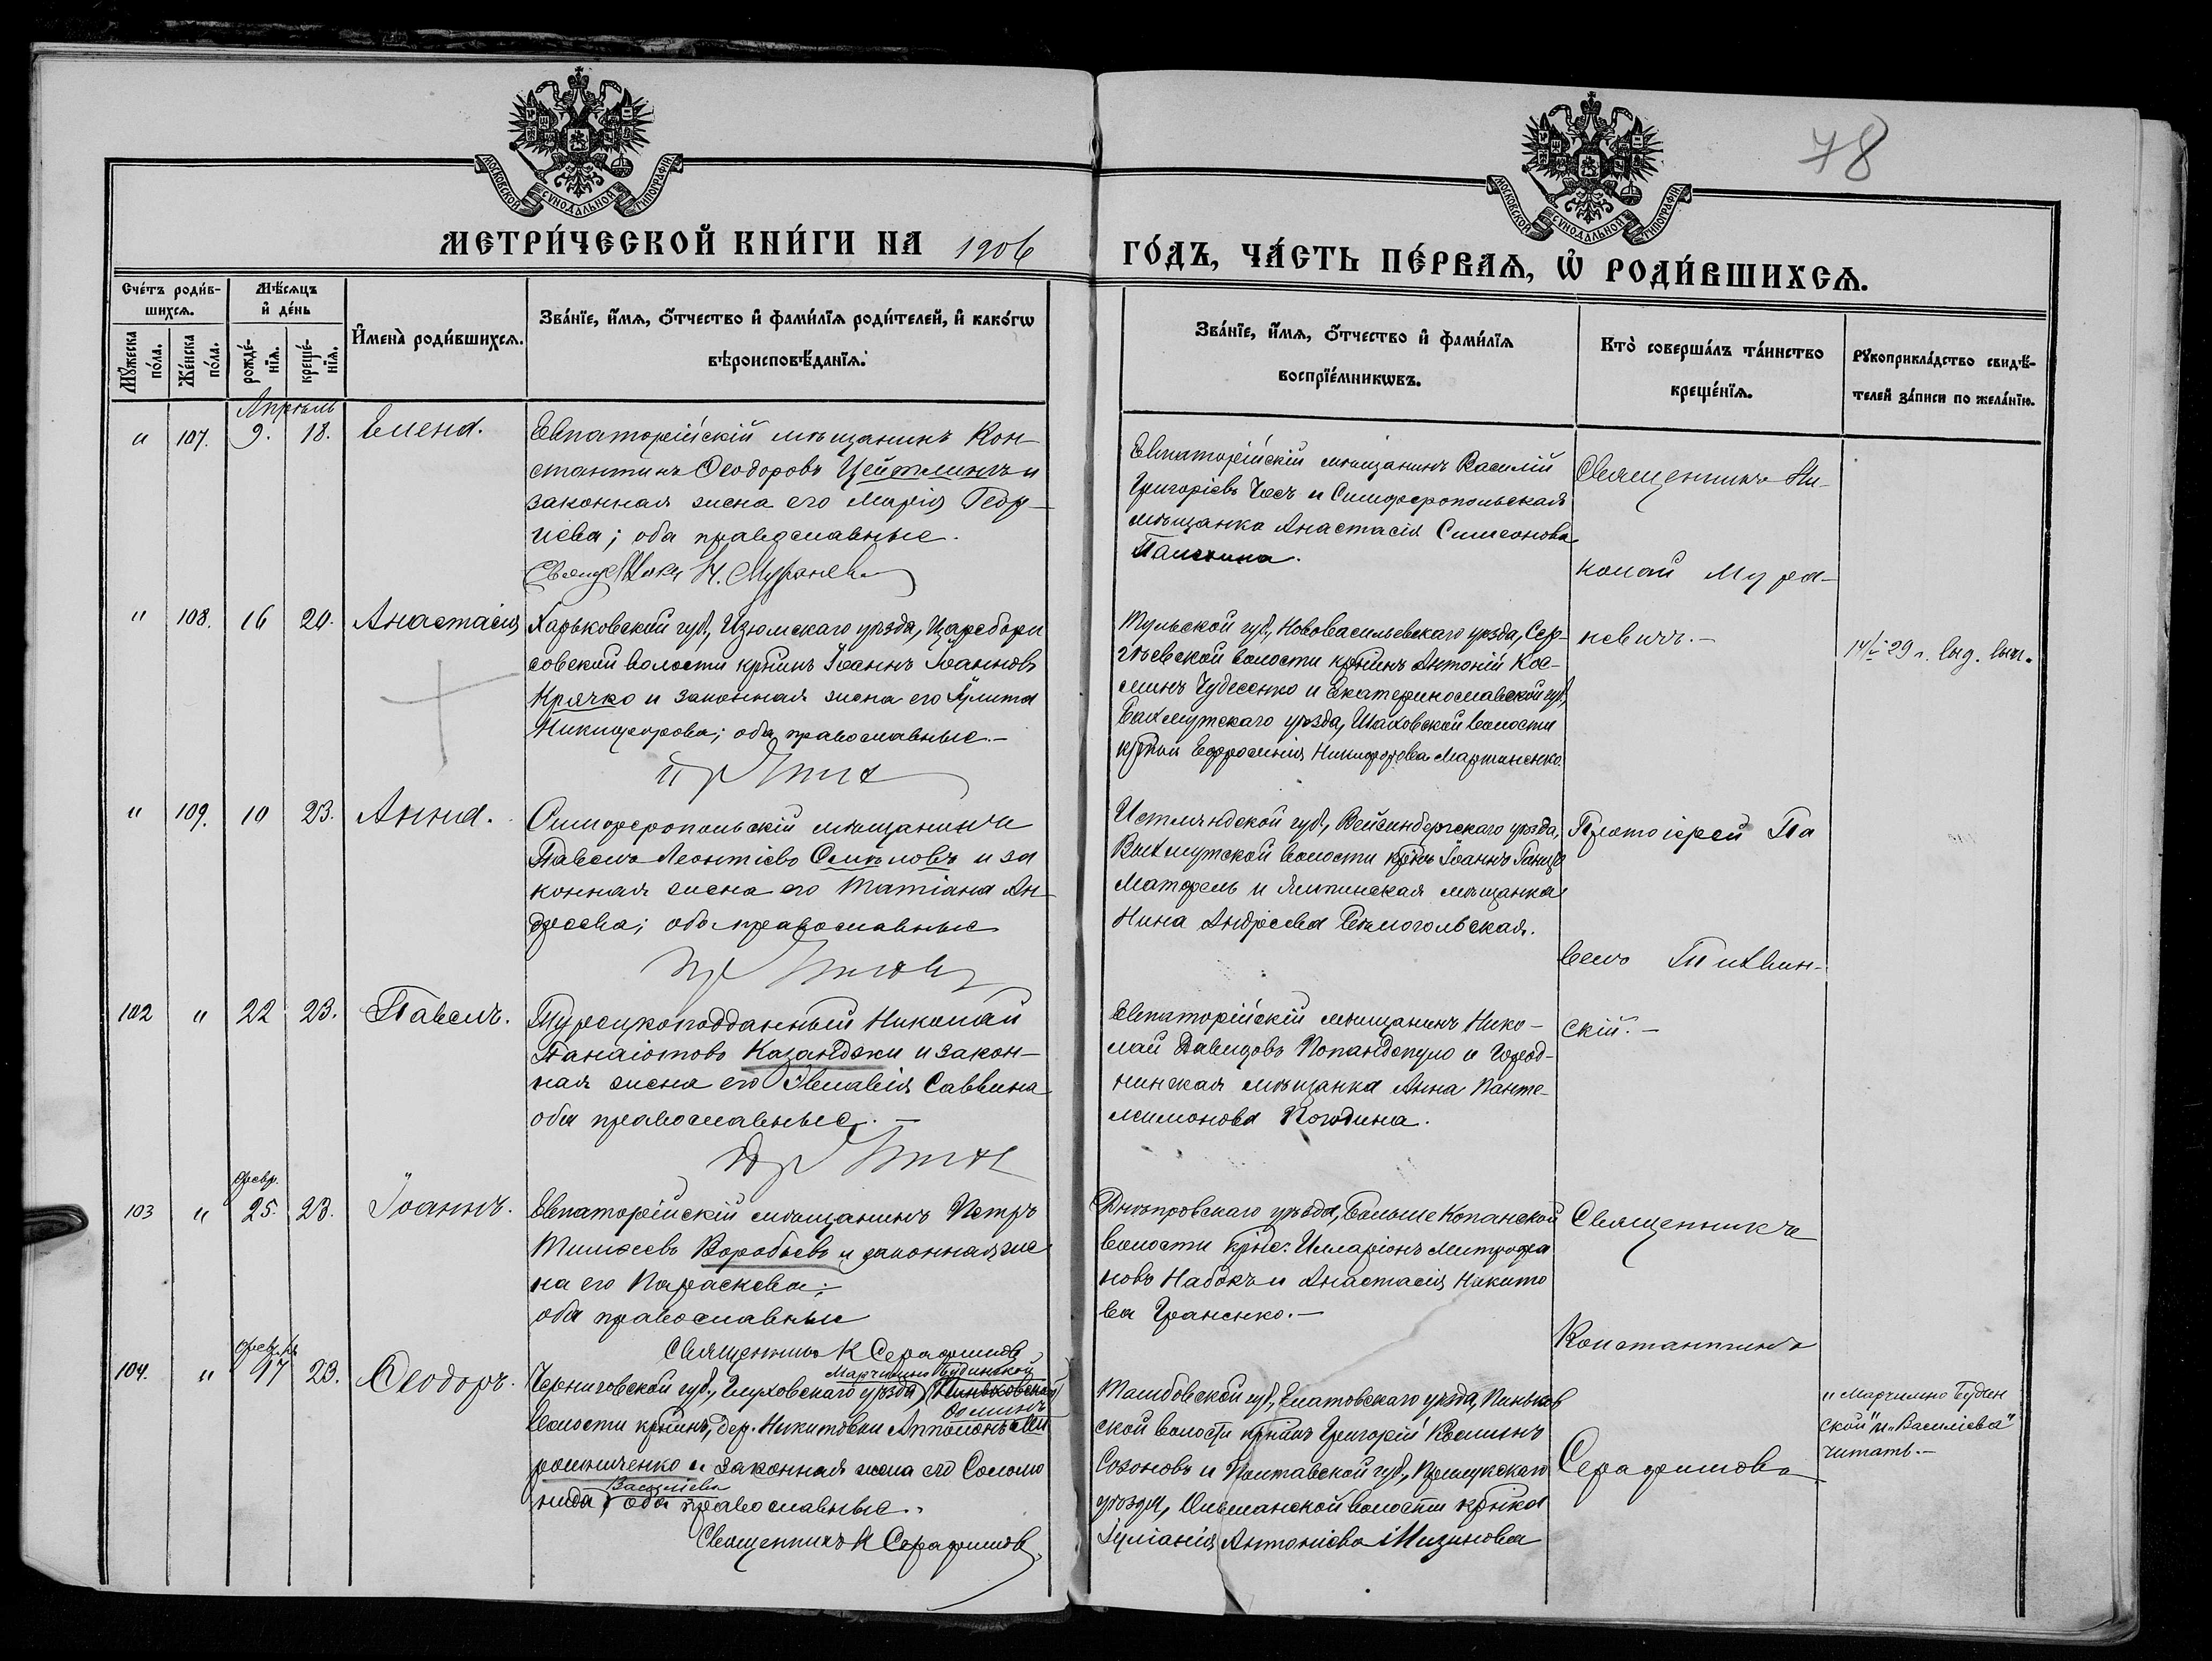 78
МОСКОВСКОЙ СѴНОДАЛЬНОЙ ТИПОГРАФІИ
МОСКОВСКОЙ СѴНОДАЛЬНОЙ ТИПОГРАФІИ
МЕТРИ́ЧЕСКОЙ КНИ́ГИ НА 1906
ГО́ДЪ, ЧА́СТЬ ПЕ́РВАЯ, Ѡ҆ РОДИ́ВШИХСѦ.
Сче́тъ роди́в-
шихсѧ.
Мꙋ́жеска по́ла.
Же́нска по́ла.
Мѣ́сѧцъ
и҆ де́нь
рожде́-
нїѧ.
креще́-
нїѧ.
И҆мена̀ роди́вшихсѧ.
Зва́нїе, и҆́мѧ, ѻ҆́тчество и҆ фами́лїѧ роди́телей, и҆ како́гѡ
вѣроисповѣ́данїѧ.
Зва́нїе, и҆́мѧ, ѻ҆́тчество и҆ фами́лїѧ
воспрїе́мникѡвъ.
Кто̀ соверша́лъ та́инство
креще́нїѧ.
Рꙋкоприкла́дство свидѣ́-
телей за́писи по жела́нїю.
Апрѣль
" 107. 9. 18. Елена.
Евпаторійскій мѣщанинъ Кон-
стантинъ Ѳеодоровъ Цейтлинъ и
законная жена его Марія Геор-
гіева; оба православные.
Евпаторійскій мѣщанинъ Василій
Григорьевъ Чехъ и Симферопольская
мѣщанка Анастасія Симеонова
Священникъ Ни-
колай Мура-
невичъ.-
" 108. 16 20. Анастасія
Харьковской губ., Изюмскаго уѣзда, Царебори
совской волости крнинъ Іоаннъ Іоанновъ
Крячко и законная жена его Іулита
Никифорова; оба православные.-
Тульской губ., Нововасильевскаго уѣзда, Сер-
гѣевской волости крнинъ Антоній Кос-
минъ Чудесенко и Екатеринославской губ.,
Бахмутскаго уѣзда, Шаховской волости
Евфросинія Никифорова Мартиненко
29 г. выд. вып.
" 109. 10 23. Анна.
Симферопольскій мѣщанинъ
Павелъ Леонтіевъ и за
конная жена его Татіана Ан-
дреева; оба православные
губ., Везенбергскаго уѣзда,
волости Іоаннъ
и Ялтинская мѣщанка
Нина Андреева
Протоіерей Па
велъ Тихвин-
скій.-
102 " 22 23. Павелъ.
Турецкоподданный Николай
Панаіотовъ Казанджи и закон-
ная жена его Саввина
оба православные.-
Евпаторійскій мѣщанинъ Нико-
лай Давидовъ Попандопуло и Грод-
нинская мѣщанка Анна Панте-
леимонова Погодина.
февр.
103 " 25. 23. Іоаннъ.
Евпаторійскій мѣщанинъ Петръ
Воробьевъ и законная же
на его Параскева;
оба православные
Священникъ К Серафимовъ
Днѣпровскаго уѣзда, Больше Копанской
волости Илларіонъ Митрофа
новъ Набокъ и Анастасія Никито
ва Граненко.-
Священникъ
Константинъ
Серафимовъ
104. " 17 23. Ѳеодоръ.
Марчишино Будинской
Черниговской губ., Глуховскаго уѣзда,
волости крнинъ, дер. Никитовки
рошниченко и законная жена его Соломо
Василіева
нида, оба православные.
Священникъ К Серафимовъ
Тамбовской губ., Елатомскаго уѣзда,
ской волости крнинъ Григорій Косминъ
Созоновъ и Полтавской губ., Прилукскаго
уѣзда, Ольшанской волости крнка
Іуліанія Антоніева Мизинова
„Марчишно Будин
ской" и „Василіева"
читать.-